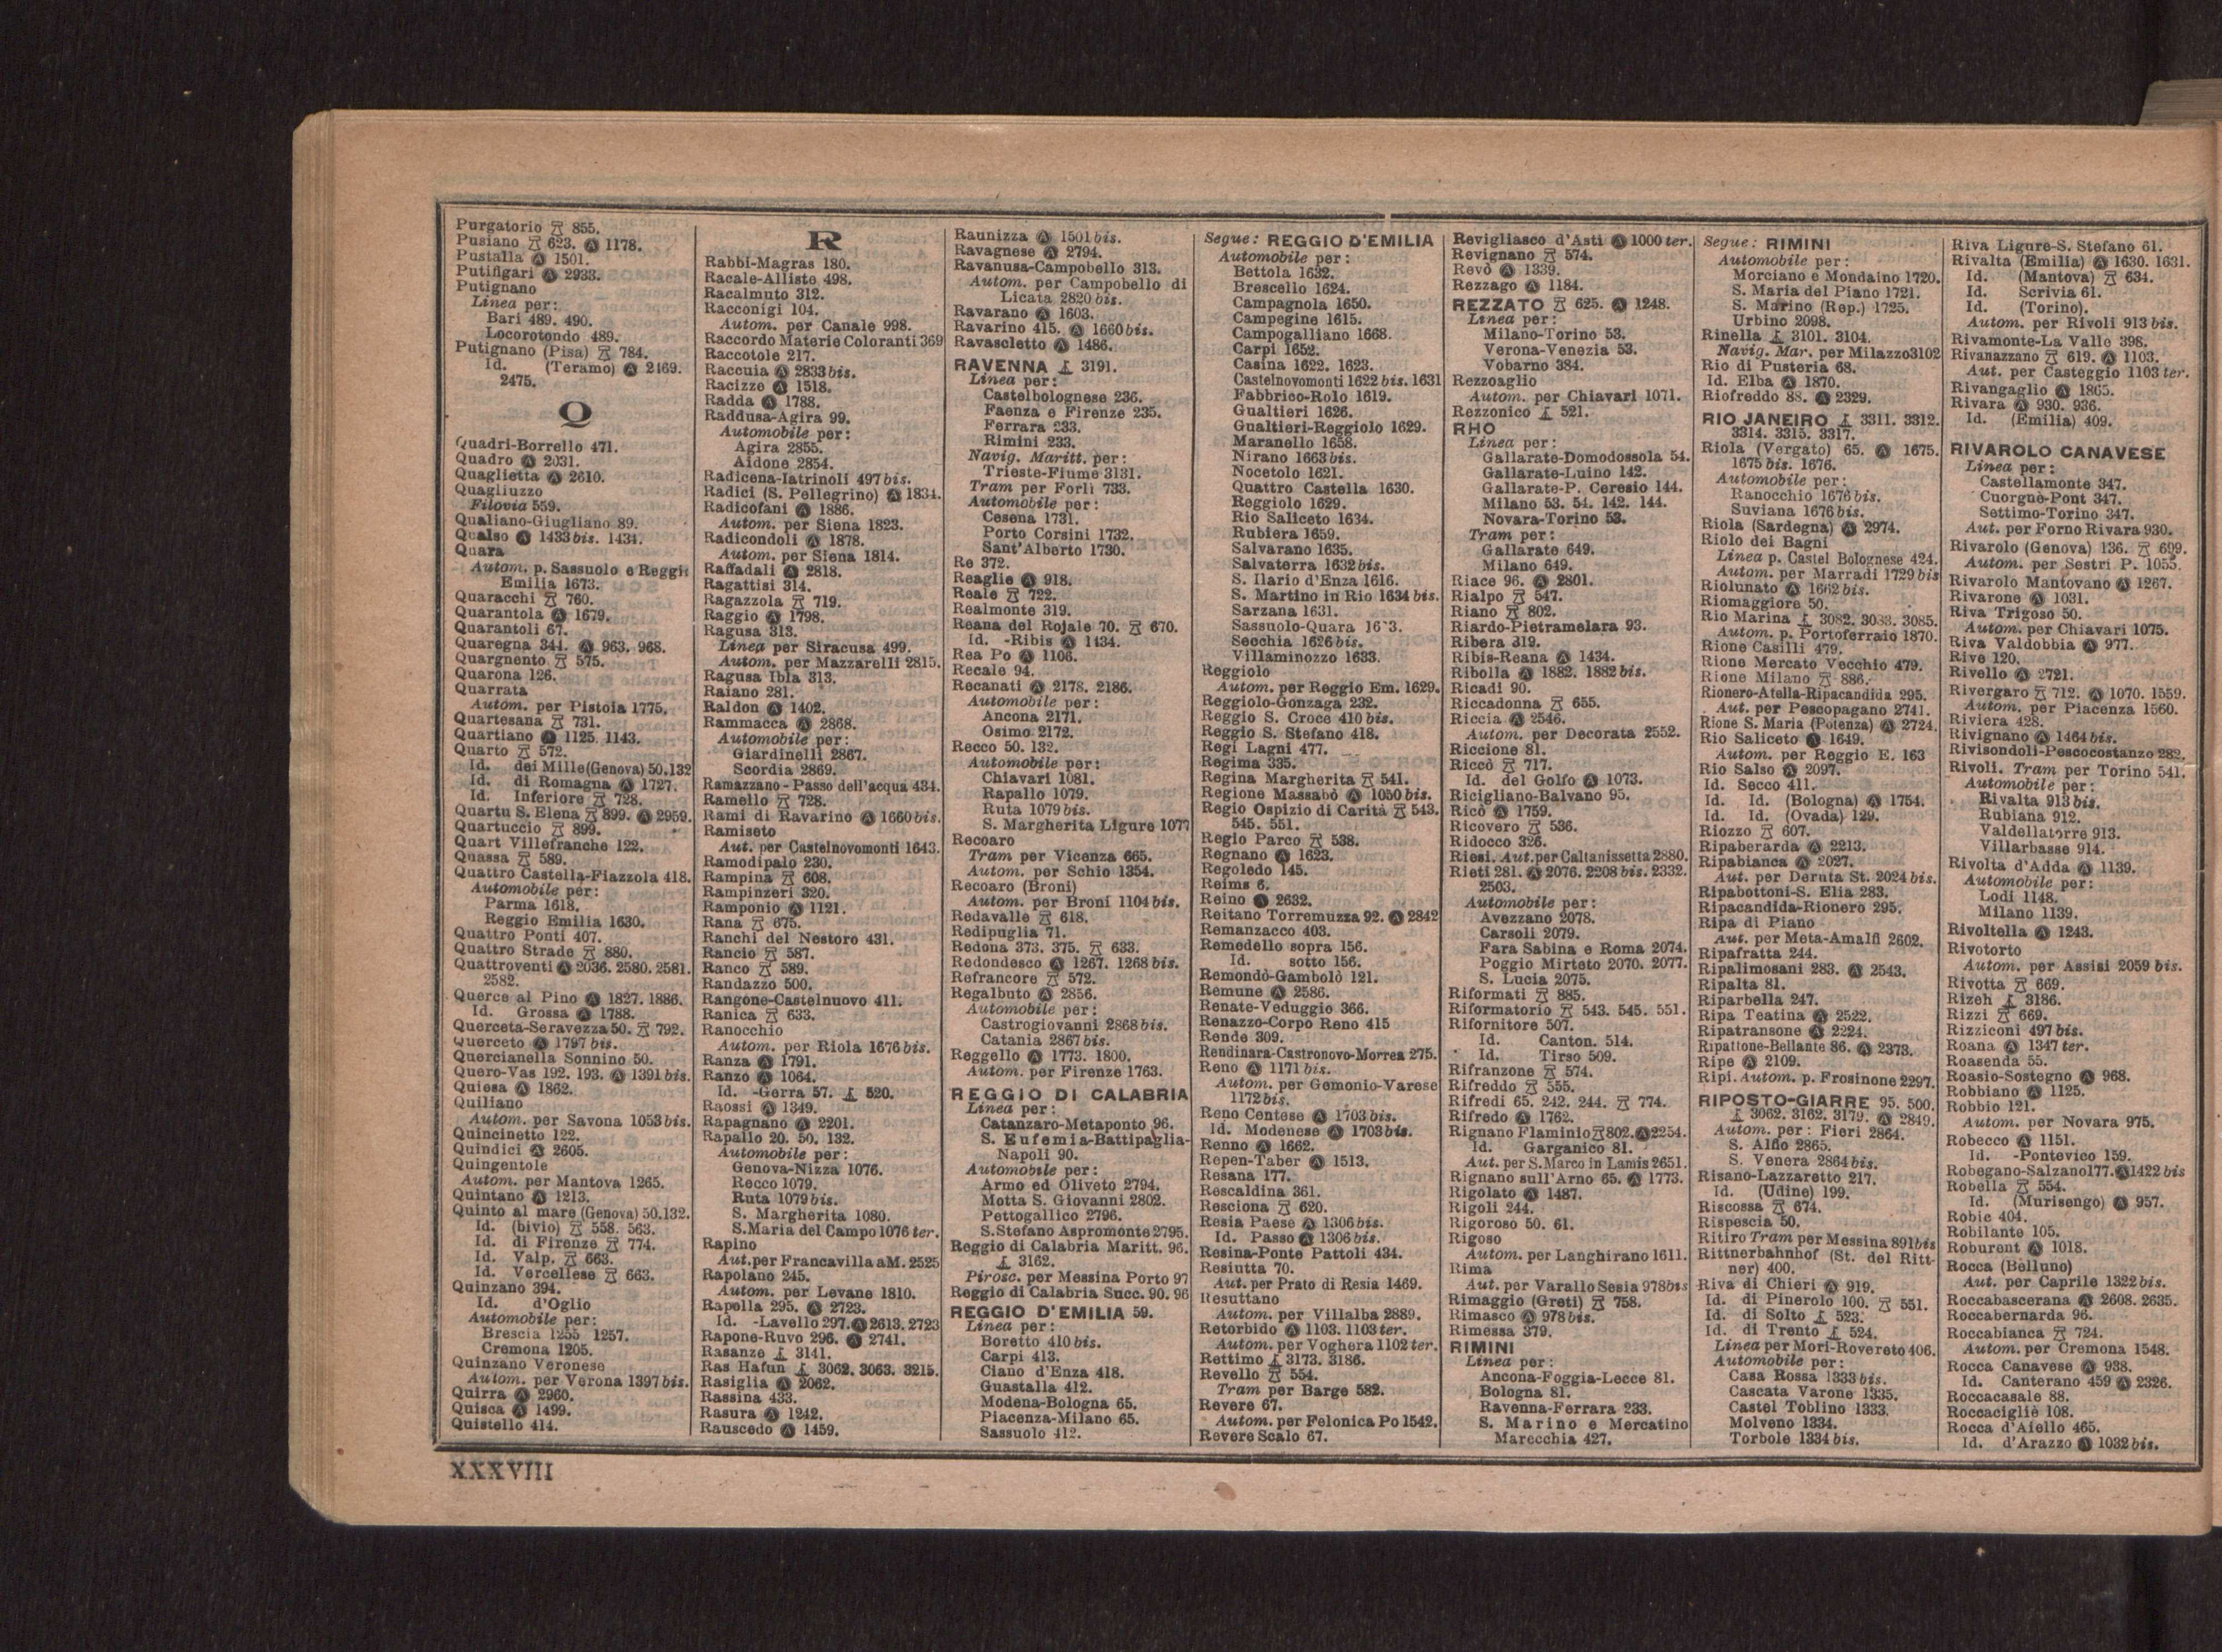 Purgatorio 855.
Pusiano 623. Ⓐ 1178.
Pustalla Ⓐ 1501.
Putifigari Ⓐ 2933.
Putignano
Linea per:
Bari 489. 490.
Locorotondo 489.
Putignano (Pisa) 784.
Id. (Teramo) Ⓐ 2469.
2475.
Q
Quadri-Borrello 471.
Quadro Ⓐ 2031.
Quaglietta Ⓐ 2610.
Quagliuzzo
Filovia 559.
Qualiano-Giugliano 89.
Qualso Ⓐ 1433 bis. 1434.
Quara
Autom. p. Sassuolo e Reggi
Emilia 1673.
Quaracchi 760.
Quarantola Ⓐ 1679.
Quarantoli 67.
Quaregna 344. Ⓐ 963. 968.
Quargnento 575.
Quarona 126.
Quarrata
Autom. per Pistoia 1775.
Quartesana 731.
Quartiano Ⓐ 1125. 1143.
Quarto 572.
Id. dei Mille (Genova) 50.132
Id. di Romagna Ⓐ 1727.
Id. Inferiore 728.
Quartu S. Elena 899. Ⓐ 2959.
Quartuccio 899.
Quart Villefranche 122.
Quassa 589.
Quattro Castella-Piazzola 418.
Automobile per:
Parma 1618.
Reggio Emilia 1630.
Quattro Ponti 407.
Quattro Strade 880.
Quattroventi Ⓐ 2036. 2580. 2581.
2582.
Querce al Pino Ⓐ 1827. 1886.
Id. Grossa Ⓐ 1788.
Querceta-Seravezza 50. 792.
Querceto Ⓐ 1797 bis.
Quercianella Sonnino 50.
Quero-Vas 192. 193. Ⓐ 1391 bis.
Quiesa Ⓐ 1862.
Quiliano
Autom. per Savona 1053 bis.
Quincinetto 122.
Quindici Ⓐ 2605.
Quingentole
Autom. per Mantova 1265.
Quintano Ⓐ 1213.
Quinto al mare (Genova) 50.132.
Id. (bivio) 558. 563.
Id. di Firenze 774.
Id. Valp. 663.
Id. Vercellese 663.
Quinzano 394.
Id. d'Oglio
Automobile per:
Brescia 1255 1257.
Cremona 1205.
Quinzano Veronese
Autom. per Verona 1397 bis.
Quirra Ⓐ 2960.
Quisca Ⓐ 1499.
Quistello 414.
R
Rabbi-Magras 180.
Racale-Alliste 498.
Racalmuto 312.
Racconigi 104.
Autom. per Canale 998.
Raccordo Materie Coloranti 369
Raccotole 217.
Raccuia Ⓐ 2833 bis.
Racizze Ⓐ 1518.
Radda Ⓐ 1788.
Raddusa-Agira 99.
Automobile per:
Agira 2855.
Aidone 2854.
Radicena-Iatrinoli 497 bis.
Radici (S. Pellegrino) Ⓐ 1834.
Radicofani Ⓐ 1886.
Autom. per Siena 1823.
Radicondoli Ⓐ 1878.
Autom. per Siena 1814.
Raffadali Ⓐ 2818.
Ragattisi 314.
Ragazzola 719.
Raggio Ⓐ 1798.
Ragusa 313.
Linea per Siracusa 499.
Autom. per Mazzarelli 2815.
Ragusa Ibla 313.
Raiano 281.
Raldon Ⓐ 1402.
Rammacca Ⓐ 2868.
Automobile per:
Giardinelli 2867.
Scordia 2869.
Ramazzano - Passo dell'acqua 434.
Ramello 728.
Rami di Ravarino Ⓐ 1660 bis.
Ramiseto
Aut. per Castelnovomonti 1643.
Ramodipalo 230.
Rampina 608.
Rampinzeri 320.
Ramponio Ⓐ 1121.
Rana 675.
Ranchi del Nestoro 431.
Rancio 587.
Ranco 589.
Randazzo 500.
Rangone-Castelnuovo 411.
Ranica 633.
Ranocchio
Autom. per Riola 1676 bis.
Ranza Ⓐ 1791.
Ranzo Ⓐ 1064.
Id. -Gerra 57. 520.
Raossi Ⓐ 1349.
Rapagnano Ⓐ 2201.
Rapallo 20. 50. 132.
Automobile per:
Genova-Nizza 1076.
Recco 1079.
Ruta 1079 bis.
S. Margherita 1080.
S. Maria del Campo 1076 ter.
Rapino
Aut. per Francavilla a M. 2525
Rapolano 245.
Autom. per Levane 1810.
Rapolla 295. Ⓐ 2723.
Id. -Lavello 297. Ⓐ 2613. 2723
Rapone-Ruvo 296. Ⓐ 2741.
Rasanze 3141.
Ras Hafun 3062. 3063. 3215.
Rasiglia Ⓐ 2062.
Rassina 433.
Rasura Ⓐ 1242.
Rauscedo Ⓐ 1459.
Raunizza Ⓐ 1501 bis.
Ravagnese Ⓐ 2794.
Ravanusa-Campobello 313.
Autom. per Campobello di
Licata 2820 bis.
Ravarano Ⓐ 1603.
Ravarino 415. Ⓐ 1660 bis.
Ravascletto Ⓐ 1486.
RAVENNA 3191.
Linea per:
Castelbolognese 236.
Faenza e Firenze 235.
Ferrara 233.
Rimini 233.
Navig. Maritt. per:
Trieste-Fiume 3131.
Tram per Forlì 733.
Automobile per:
Cesena 1731.
Porto Corsini 1732.
Sant'Alberto 1730.
Re 372.
Reaglie Ⓐ 918.
Reale 722.
Realmonte 319.
Reana del Rojale 70. 670.
Id. -Ribis Ⓐ 1434.
Rea Po Ⓐ 1106.
Recale 94.
Recanati Ⓐ 2178. 2186.
Automobile per:
Ancona 2171.
Osimo 2172.
Recco 50. 132.
Automobile per:
Chiavari 1081.
Rapallo 1079.
Ruta 1079 bis.
S. Margherita Ligure 1077
Recoaro
Tram per Vicenza 665.
Autom. per Schio 1354.
Recoaro (Broni)
Autom. per Broni 1104 bis.
Redavalle 618.
Redipuglia 71.
Redona 373. 375. 633.
Redondesco Ⓐ 1267. 1268 bis.
Refrancore 572.
Regalbuto Ⓐ 2856.
Automobile per:
Castrogiovanni 2868 bis.
Catania 2867 bis.
Reggello Ⓐ 1773. 1800.
Autom. per Firenze 1763.
REGGIO DI CALABRIA
Linea per:
Catanzaro-Metaponto 96.
S. Eufemia-Battipaglia-
Napoli 90.
Automobile per:
Armo ed Oliveto 2794.
Motta S. Giovanni 2802.
Pettogallico 2796.
S. Stefano Aspromonte 2795.
Reggio di Calabria Maritt. 96.
3162.
Pirosc. per Messina Porto 97
Reggio di Calabria Succ. 90. 96
REGGIO D'EMILIA 59.
Linea per:
Boretto 410 bis.
Carpi 413.
Ciano d'Enza 418.
Guastalla 412.
Modena-Bologna 65.
Piacenza-Milano 65.
Sassuolo 412.
Segue: REGGIO D'EMILIA
Automobile per:
Bettola 1632.
Brescello 1624.
Campagnola 1650.
Campegine 1615.
Campogalliano 1668.
Carpi 1652.
Casina 1622. 1623.
Castelnovomonti 1622 bis. 1631
Fabbrico-Rolo 1619.
Gualtieri 1626.
Gualtieri-Reggiolo 1629.
Maranello 1658.
Nirano 1663 bis.
Nocetolo 1621.
Quattro Castella 1630.
Reggiolo 1629.
Rio Saliceto 1634.
Rubiera 1659.
Salvarano 1635.
Salvaterra 1632 bis.
S. Ilario d'Enza 1616.
S. Martino in Rio 1634 bis.
Sarzana 1631.
Sassuolo-Quara
Secchia 1626 bis.
Villaminozzo 1633.
Reggiolo
Autom. per Reggio Em. 1629.
Reggiolo-Gonzaga 232.
Reggio S. Croce 410 bis.
Reggio S. Stefano 418.
Regi Lagni 477.
Regima 335.
Regina Margherita 541.
Regione Massabò Ⓐ 1050 bis.
Regio Ospizio di Carità 543.
545. 551.
Regio Parco 538.
Regnano Ⓐ 1623.
Regoledo 145.
Reims 6.
Reino Ⓐ 2632.
Reitano Torremuzza 92. Ⓐ 2842
Remanzacco 403.
Remedello sopra 156.
Id. sotto 156.
Remondò-Gambolò 121.
Remune Ⓐ 2586.
Renate-Veduggio 366.
Renazzo-Corpo Reno 415
Rende 309.
Rendinara-Castronovo-Morrea 275.
Reno Ⓐ 1171 bis.
Autom. per Gemonio-Varese
1172 bis.
Reno Centese Ⓐ 1703 bis.
Id. Modenese Ⓐ 1703 bis.
Renno Ⓐ 1662.
Repen-Taber Ⓐ 1513.
Resana 177.
Rescaldina 361.
Resciona 620.
Resia Paese Ⓐ 1306 bis.
Id. Passo Ⓐ 1306 bis.
Resina-Ponte Pattoli 434.
Resiutta 70.
Aut. per Prato di Resia 1469.
Resuttano
Autom. per Villalba 2889.
Retorbido Ⓐ 1103. 1103 ter.
Autom. per Voghera 1102 ter.
Rettimo 3173. 3186.
Revello 554.
Tram per Barge 582.
Revere 67.
Autom. per Felonica Po 1542.
Revere Scalo 67.
Revigliasco d'Asti Ⓐ 1000 ter.
Revignano 574.
Revò Ⓐ 1339.
Rezzago Ⓐ 1184.
REZZATO 625. Ⓐ 1248.
Linea per:
Milano-Torino 53.
Verona-Venezia 53.
Vobarno 384.
Rezzoaglio
Autom. per Chiavari 1071.
Rezzonico 521.
RHO
Linea per:
Gallarate-Domodossola 54.
Gallarate-Luino 142.
Gallarate-P. Ceresio 144.
Milano 53. 54. 142. 144.
Novara-Torino 53.
Tram per:
Gallarate 649.
Milano 649.
Riace 96. Ⓐ 2801.
Rialpo 547.
Riano 802.
Riardo-Pietramelara 93.
Ribera 319.
Ribis-Reana Ⓐ 1434.
Ribolla Ⓐ 1882. 1882 bis.
Ricadi 90.
Riccadonna 655.
Riccia Ⓐ 2546.
Autom. per Decorata 2552.
Riccione 81.
Riccò 717.
Id. del Golfo Ⓐ 1073.
Ricigliano-Balvano 95.
Ricò Ⓐ 1759.
Ricovero 536.
Ridocco 326.
Riesi. Aut. per Caltanissetta 2880.
Rieti 281. Ⓐ 2076. 2208 bis. 2332.
2503.
Automobile per:
Avezzano 2078.
Carsoli 2079.
Fara Sabina e Roma 2074.
Poggio Mirteto 2070. 2077.
S. Lucia 2075.
Riformati 885.
Riformatorio 543. 545. 551.
Rifornitore 507.
Id. Canton. 514.
Id. Tirso 509.
Rifranzone 574.
Rifreddo 555.
Rifredi 65. 242. 244. 774.
Rifredo Ⓐ 1762.
Rignano Flaminio 802. Ⓐ 2254.
Id. Garganico 81.
Aut. per S. Marco in Lamis 2651.
Rignano sull'Arno 65. Ⓐ 1773.
Rigolato Ⓐ 1487.
Rigoli 244.
Rigoroso 50. 61.
Rigoso
Autom. per Langhirano 1611.
Rima
Aut. per Varallo Sesia 978 bis
Rimaggio (Greti) 758.
Rimasco Ⓐ 978 bis.
Rimessa 379.
RIMINI
Linea per:
Ancona-Foggia-Lecce 81.
Bologna 81.
Ravenna-Ferrara 233.
S. Marino e Mercatino
Marecchia 427.
Segue: RIMINI
Automobile per:
Morciano e Mondaino 1720.
S. Maria del Piano 1721.
S. Marino (Rep.) 1725.
Urbino 2098.
Rinella 3101. 3104.
Navig. Mar. per Milazzo 3102
Rio di Pusteria 68.
Id. Elba Ⓐ 1870.
Riofreddo 88. Ⓐ 2329.
RIO JANEIRO 3311. 3312.
3314. 3315. 3317.
Riola (Vergato) 65. Ⓐ 1675.
1675 bis. 1676.
Automobile per:
Ranocchio 1676 bis.
Suviana 1676 bis.
Riola (Sardegna) Ⓐ 2974.
Riolo dei Bagni
Linea p. Castel Bolognese 424.
Autom. per Marradi 1729 bis
Riolunato Ⓐ 1662 bis.
Riomaggiore 50.
Rio Marina 3082. 3083. 3085.
Autom. p. Portoferraio 1870.
Rione Casilli 479.
Rione Mercato Vecchio 479.
Rione Milano 886.
Rionero-Atella-Ripacandida 295.
Aut. per Pescopagano 2741.
Rione S. Maria (Potenza) Ⓐ 2724.
Rio Saliceto Ⓐ 1649.
Autom. per Reggio E. 163
Rio Salso Ⓐ 2097.
Id. Secco 411.
Id. Id. (Bologna) Ⓐ 1754.
Id. Id. (Ovada) 129.
Riozzo 607.
Ripaberarda Ⓐ 2213.
Ripabianca Ⓐ 2027.
Aut. per Deruta St. 2024 bis.
Ripabottoni-S. Elia 283.
Ripacandida-Rionero 295.
Ripa di Piano
Aut. per Meta-Amalfi 2602.
Ripafratta 244.
Ripalimosani 283. Ⓐ 2543.
Ripalta 81.
Riparbella 247.
Ripa Teatina Ⓐ 2522.
Ripatransone Ⓐ 2224.
Ripattone-Bellante 86. Ⓐ 2373.
Ripe Ⓐ 2109.
Ripi. Autom. p. Frosinone 2297.
RIPOSTO-GIARRE 95. 500.
3062. 3162. 3179. Ⓐ 2849.
Autom. per: Fieri 2864.
S. Alfio 2865.
S. Venera 2864 bis.
Risano-Lazzaretto 217.
Id. (Udine) 199.
Riscossa 674.
Rispescia 50.
Ritiro Tram per Messina 891 bis
Rittnerbahnhof (St. del Ritt-
ner) 400.
Riva di Chieri Ⓐ 919.
Id. di Pinerolo 100. 551.
Id. di Solto 523.
Id. di Trento 524.
Linea per Mori-Rovereto 406.
Automobile per:
Casa Rossa 1333 bis.
Cascata Varone 1335.
Castel Toblino 1333.
Molveno 1334.
Torbole 1334 bis.
Riva Ligure-S. Stefano 61.
Rivalta (Emilia) Ⓐ 1630. 1631.
Id. (Mantova) 634.
Id. Scrivia 61.
Id. (Torino).
Autom. per Rivoli 913 bis.
Rivamonte-La Valle 398.
Rivanazzano 619. Ⓐ 1103.
Aut. per Casteggio 1103 ter.
Rivangaglio Ⓐ 1865.
Rivara Ⓐ 930. 936.
Id. (Emilia) 409.
RIVAROLO CANAVESE
Linea per:
Castellamonte 347.
Cuorgnè-Pont 347.
Settimo-Torino 347.
Aut. per Forno Rivara 930.
Rivarolo (Genova) 136. 699.
Autom. per Sestri P. 1055.
Rivarolo Mantovano Ⓐ 1267.
Rivarone Ⓐ 1031.
Riva Trigoso 50.
Autom. per Chiavari 1075.
Riva Valdobbia Ⓐ 977.
Rive 120.
Rivello Ⓐ 2721.
Rivergaro 712. Ⓐ 1070. 1559.
Autom. per Piacenza 1560.
Riviera 428.
Rivignano Ⓐ 1464 bis.
Rivisondoli-Pescocostanzo 282.
Rivoli. Tram per Torino 541.
Automobile per:
Rivalta 913 bis.
Rubiana 912.
Valdellatorre 913.
Villarbasse 914.
Rivolta d'Adda Ⓐ 1139.
Automobile per:
Lodi 1148.
Milano 1139.
Rivoltella Ⓐ 1243.
Rivotorto
Autom. per Assisi 2059 bis.
Rivotta 669.
Rizeh 3186.
Rizzi 669.
Rizziconi 497 bis.
Roana Ⓐ 1347 ter.
Roasenda 55.
Roasio-Sostegno Ⓐ 968.
Robbiano Ⓐ 1125.
Robbio 121.
Autom. per Novara 975.
Robecco Ⓐ 1151.
Id. -Pontevico 159.
Robegano-Salzano 177. Ⓐ 1422 bis
Robella 554.
Id. (Murisengo) Ⓐ 957.
Robic 404.
Robilante 105.
Roburent Ⓐ 1018.
Rocca (Belluno)
Aut. per Caprile 1322 bis.
Roccabascerana Ⓐ 2608. 2635.
Roccabernarda 96.
Roccabianca 724.
Autom. per Cremona 1548.
Rocca Canavese Ⓐ 938.
Id. Canterano 459 Ⓐ 2326.
Roccacasale 88.
Roccacigliè 108.
Rocca d'Aiello 465.
Id. d'Arazzo Ⓐ 1032 bis.
XXXVIII